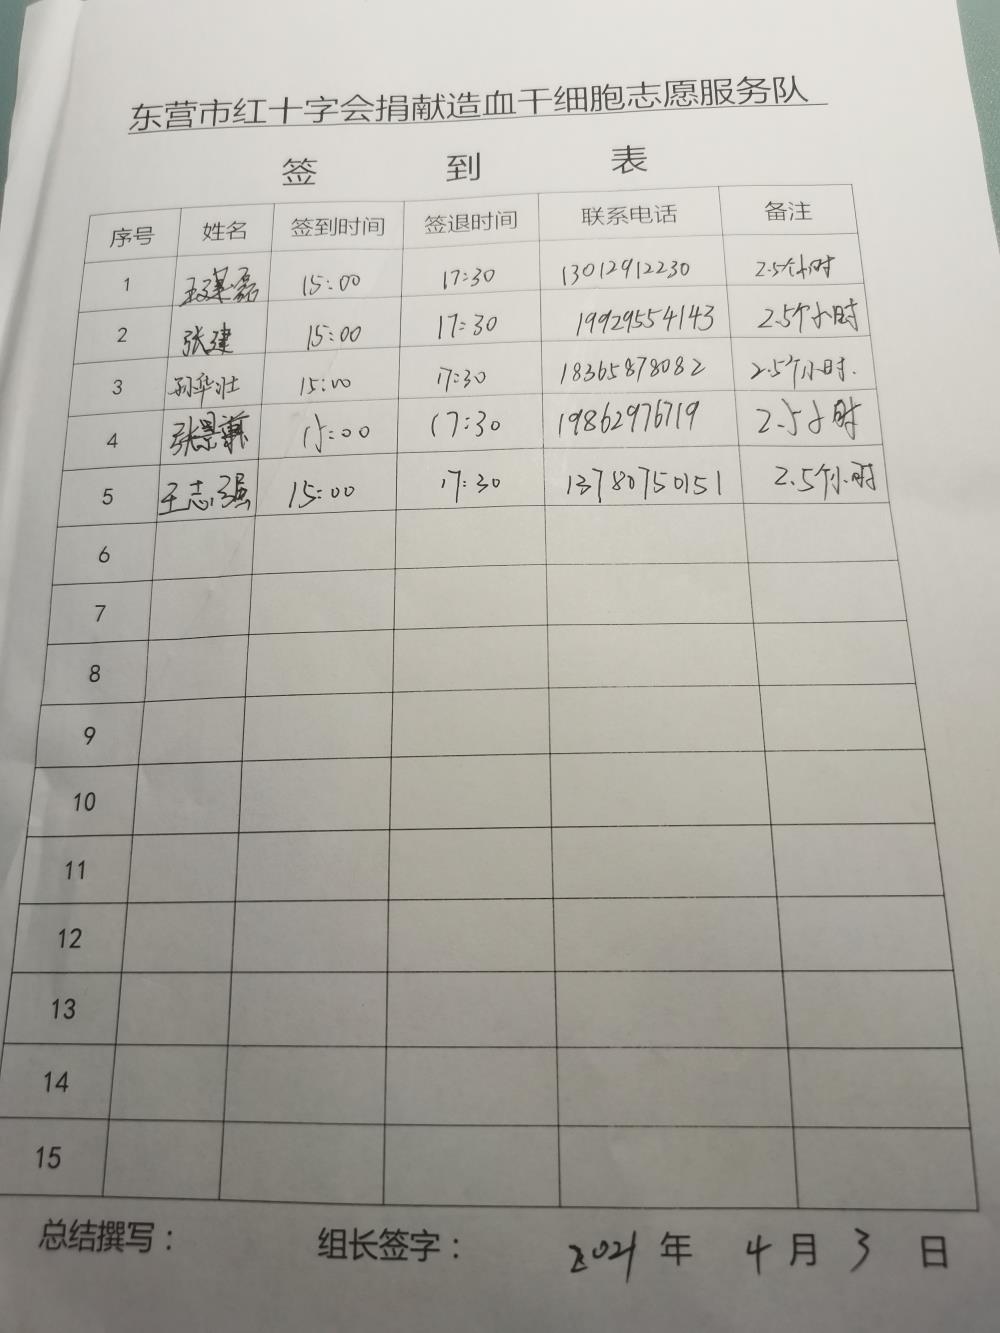 东营市红十字会捐献造血干细胞志愿服务队
签 到 表
序号 姓名 签到时间 签退时间 联系电话 备注
1 15:00 17:30 13012912230 2.5个小时
2 张建 15:00 17:30 19929554143 2.5个小时
3 孙华壮 15:00 17:30 18365878082 2.5个小时.
4 张景 15:00 17:30 19862976719 2.5小时
5 王志强 15:00 17:30 13780750151 2.5个小时
6
7
8
9
10
11
12
13
14
15
总结撰写： 组长签字： 2021 年 4 月 3 日